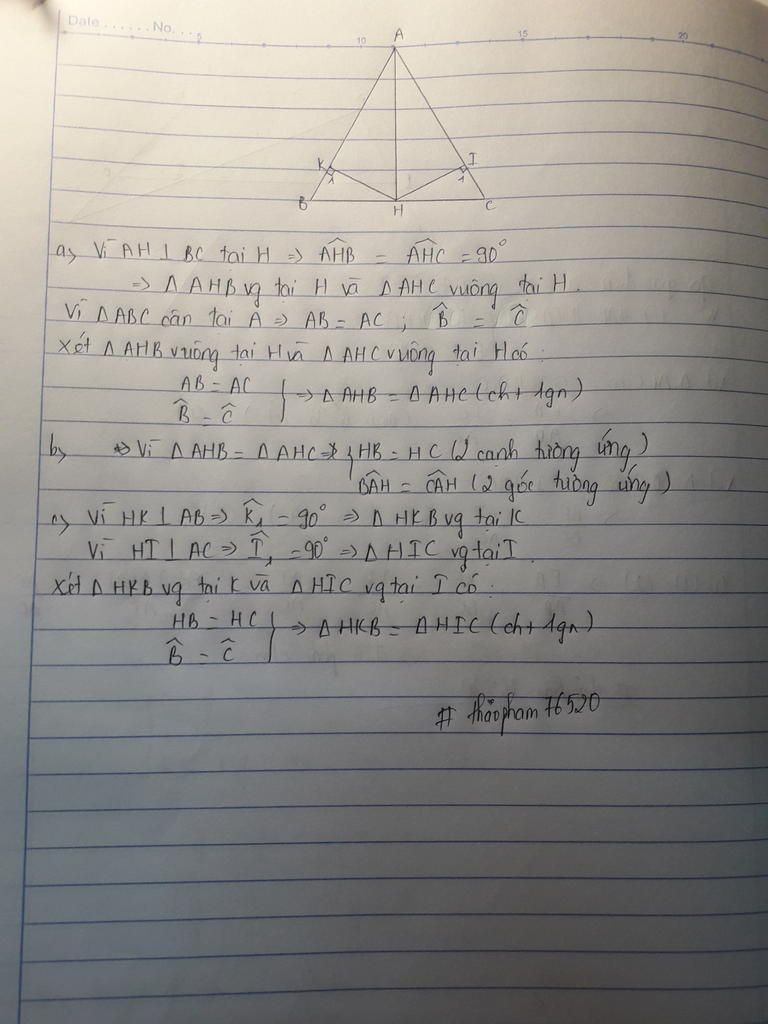 Date ...... No. ...
5 10 15 20
A
K I
1 1
B H C
a, Vì AH ⊥ BC tại H => AHB^ = AHC^ = 90°
=> Δ AHB vg tại H và Δ AHC vuông tại H.
Vì ΔABC cân tại A => AB = AC ; B^ = C^
Xét Δ AHB vuông tại H và Δ AHC vuông tại H có :
AB = AC
B^ = C^ } => Δ AHB = Δ AHC (ch + 1gn)
b, => Vì Δ AHB = Δ AHC => { HB = HC (2 cạnh tương ứng)
BAH^ = CAH^ (2 góc tương ứng)
c, Vì HK ⊥ AB => K₁^ = 90° => Δ HKB vg tại K
Vì HI ⊥ AC => I₁^ = 90° => Δ HIC vg tại I.
Xét Δ HKB vg tại K và Δ HIC vg tại I có :
HB = HC
B^ = C^ } => Δ HKB = Δ HIC (ch + 1gn)
# thảopham76520